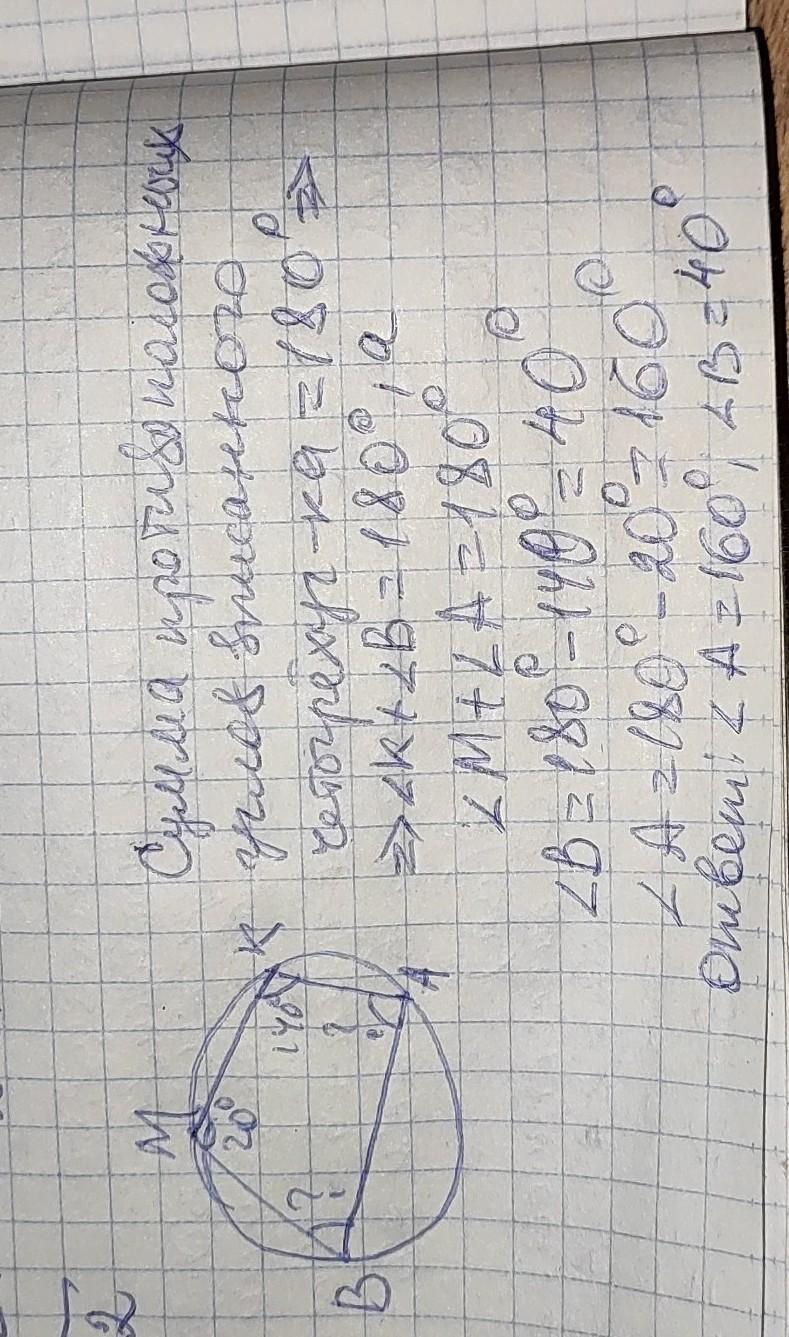 2
M
K
A
B
20°
140°
?
?
Сумма противоположных
углов вписанного
четырёхуг-ка = 180° ⇒
⇒ ∠K + ∠B = 180°, а
∠M + ∠A = 180°
∠B = 180° - 140° = 40°
∠A = 180° - 20° = 160°
Ответ: ∠A = 160°, ∠B = 40°